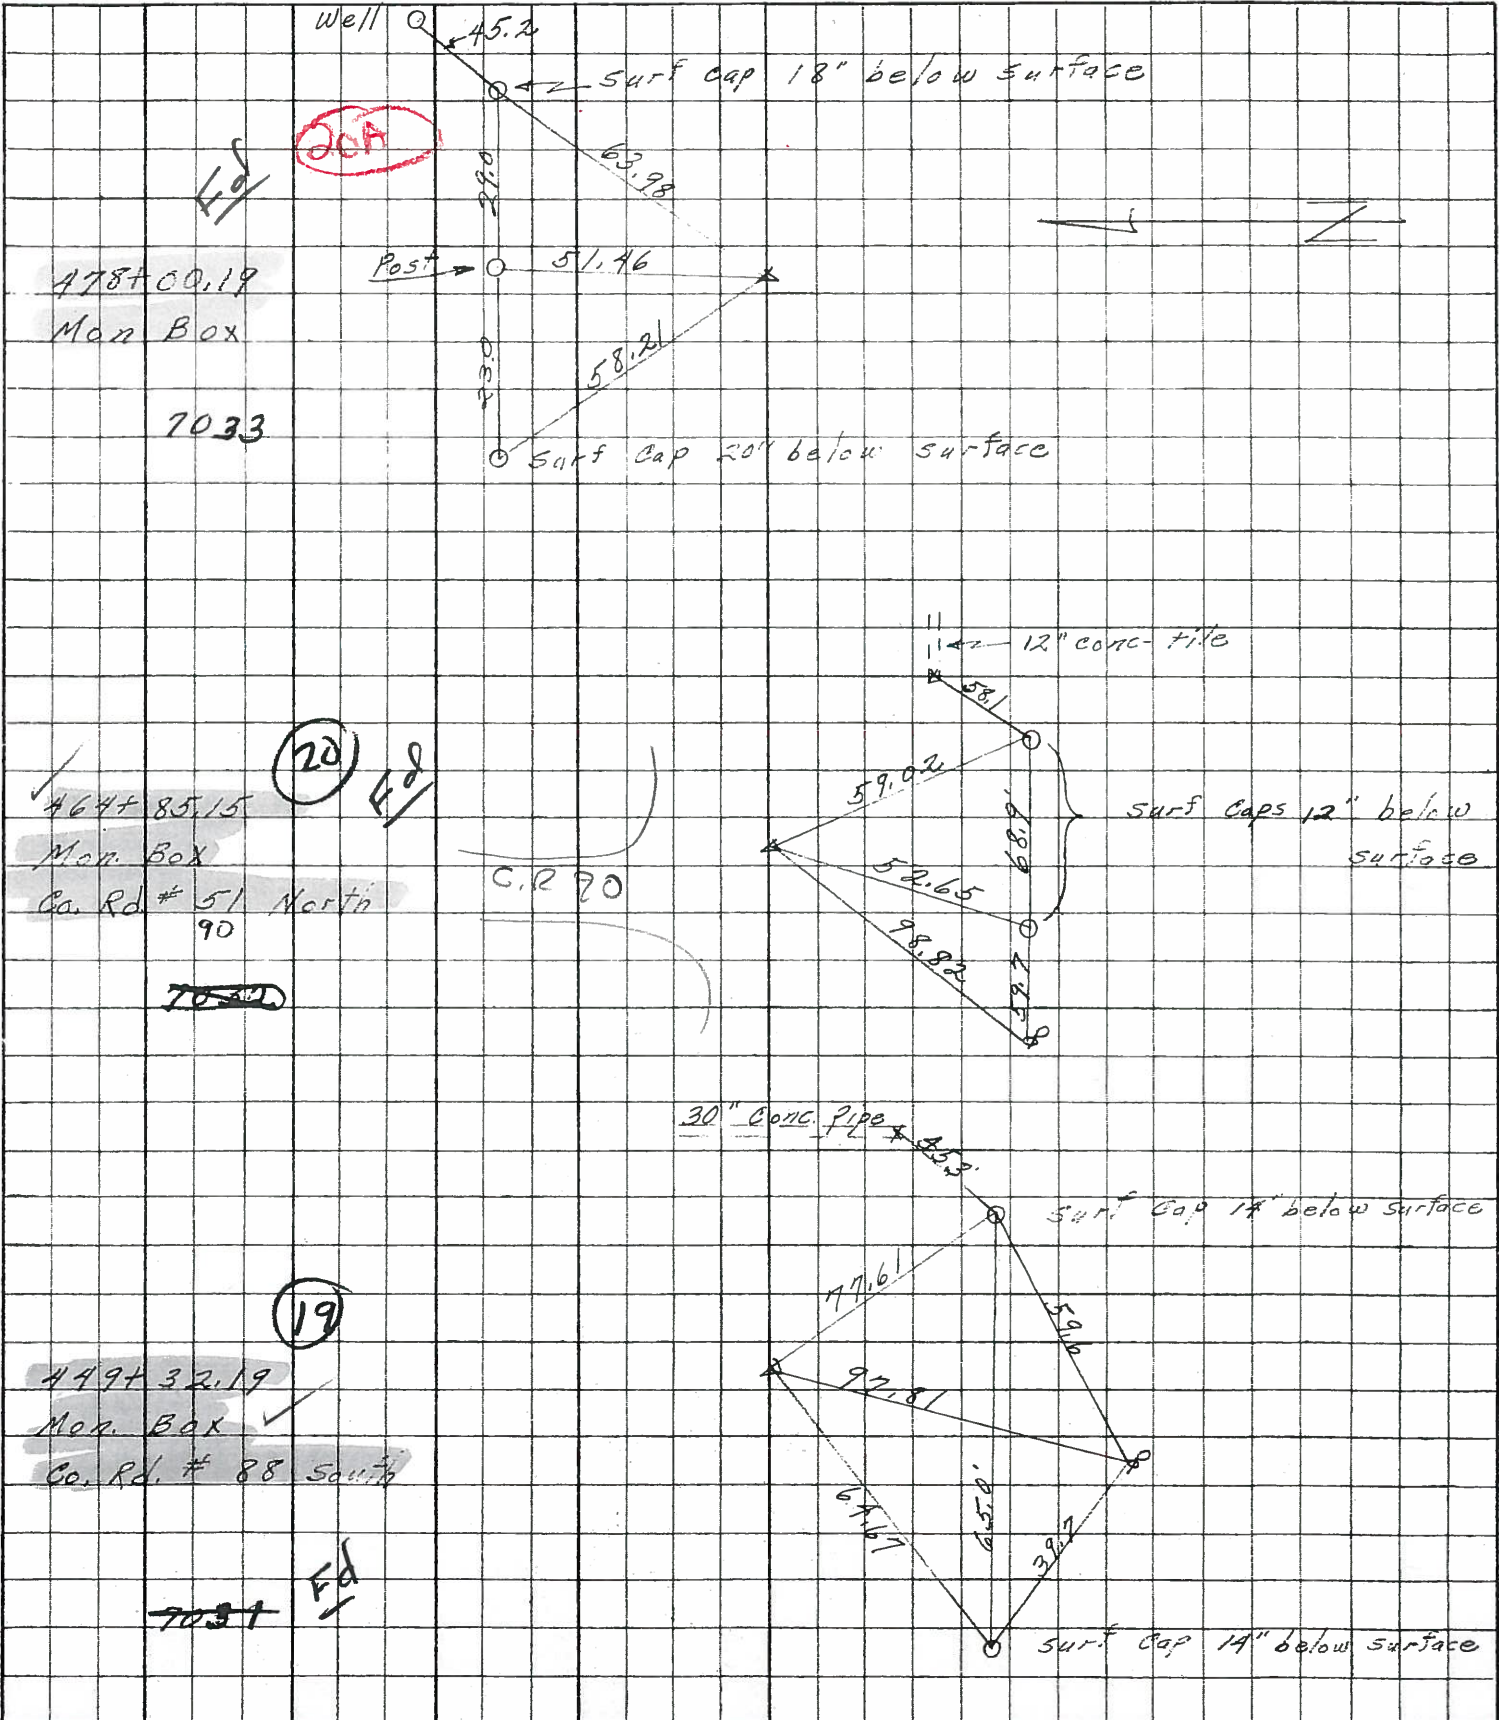 Well
45.2
Surf Cap 18" below surface
20A
Fd
29.0
63.98
N
Post
51.46
478+00.19
Mon Box
23.0
58.21
7033
Surf Cap 20" below surface
12" conc. tile
58.1
20
Fd
59.02
464+85.15
Mon. Box
Co. Rd. # 51 North
90
C.R 90
68.9'
Surf Caps 12" below
surface
52.65
98.82
59.7
7032
30" Conc. Pipe
45.3'
Surf Cap 14" below surface
77.61
59.6
19
449+32.19
Mon. Box
Co. Rd. # 88 South
97.81
64.67
65.0'
39.7
Fd
7031
Surf Cap 14" below surface